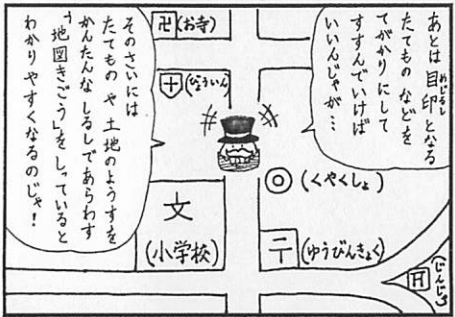 あとは目印となる
めじるし
たてものなどを
てがかりにして
すすんでいけば
いいんじゃが…
そのさいには
たてものや土地のようすを
かんたんなしるしであらわす
「地図きごう」をしっていると
わかりやすくなるのじゃ!
卍(お寺)
(びょういん)
◎(くやくしょ)
文
(小学校)
〒(ゆうびんきょく)
(じんじゃ)